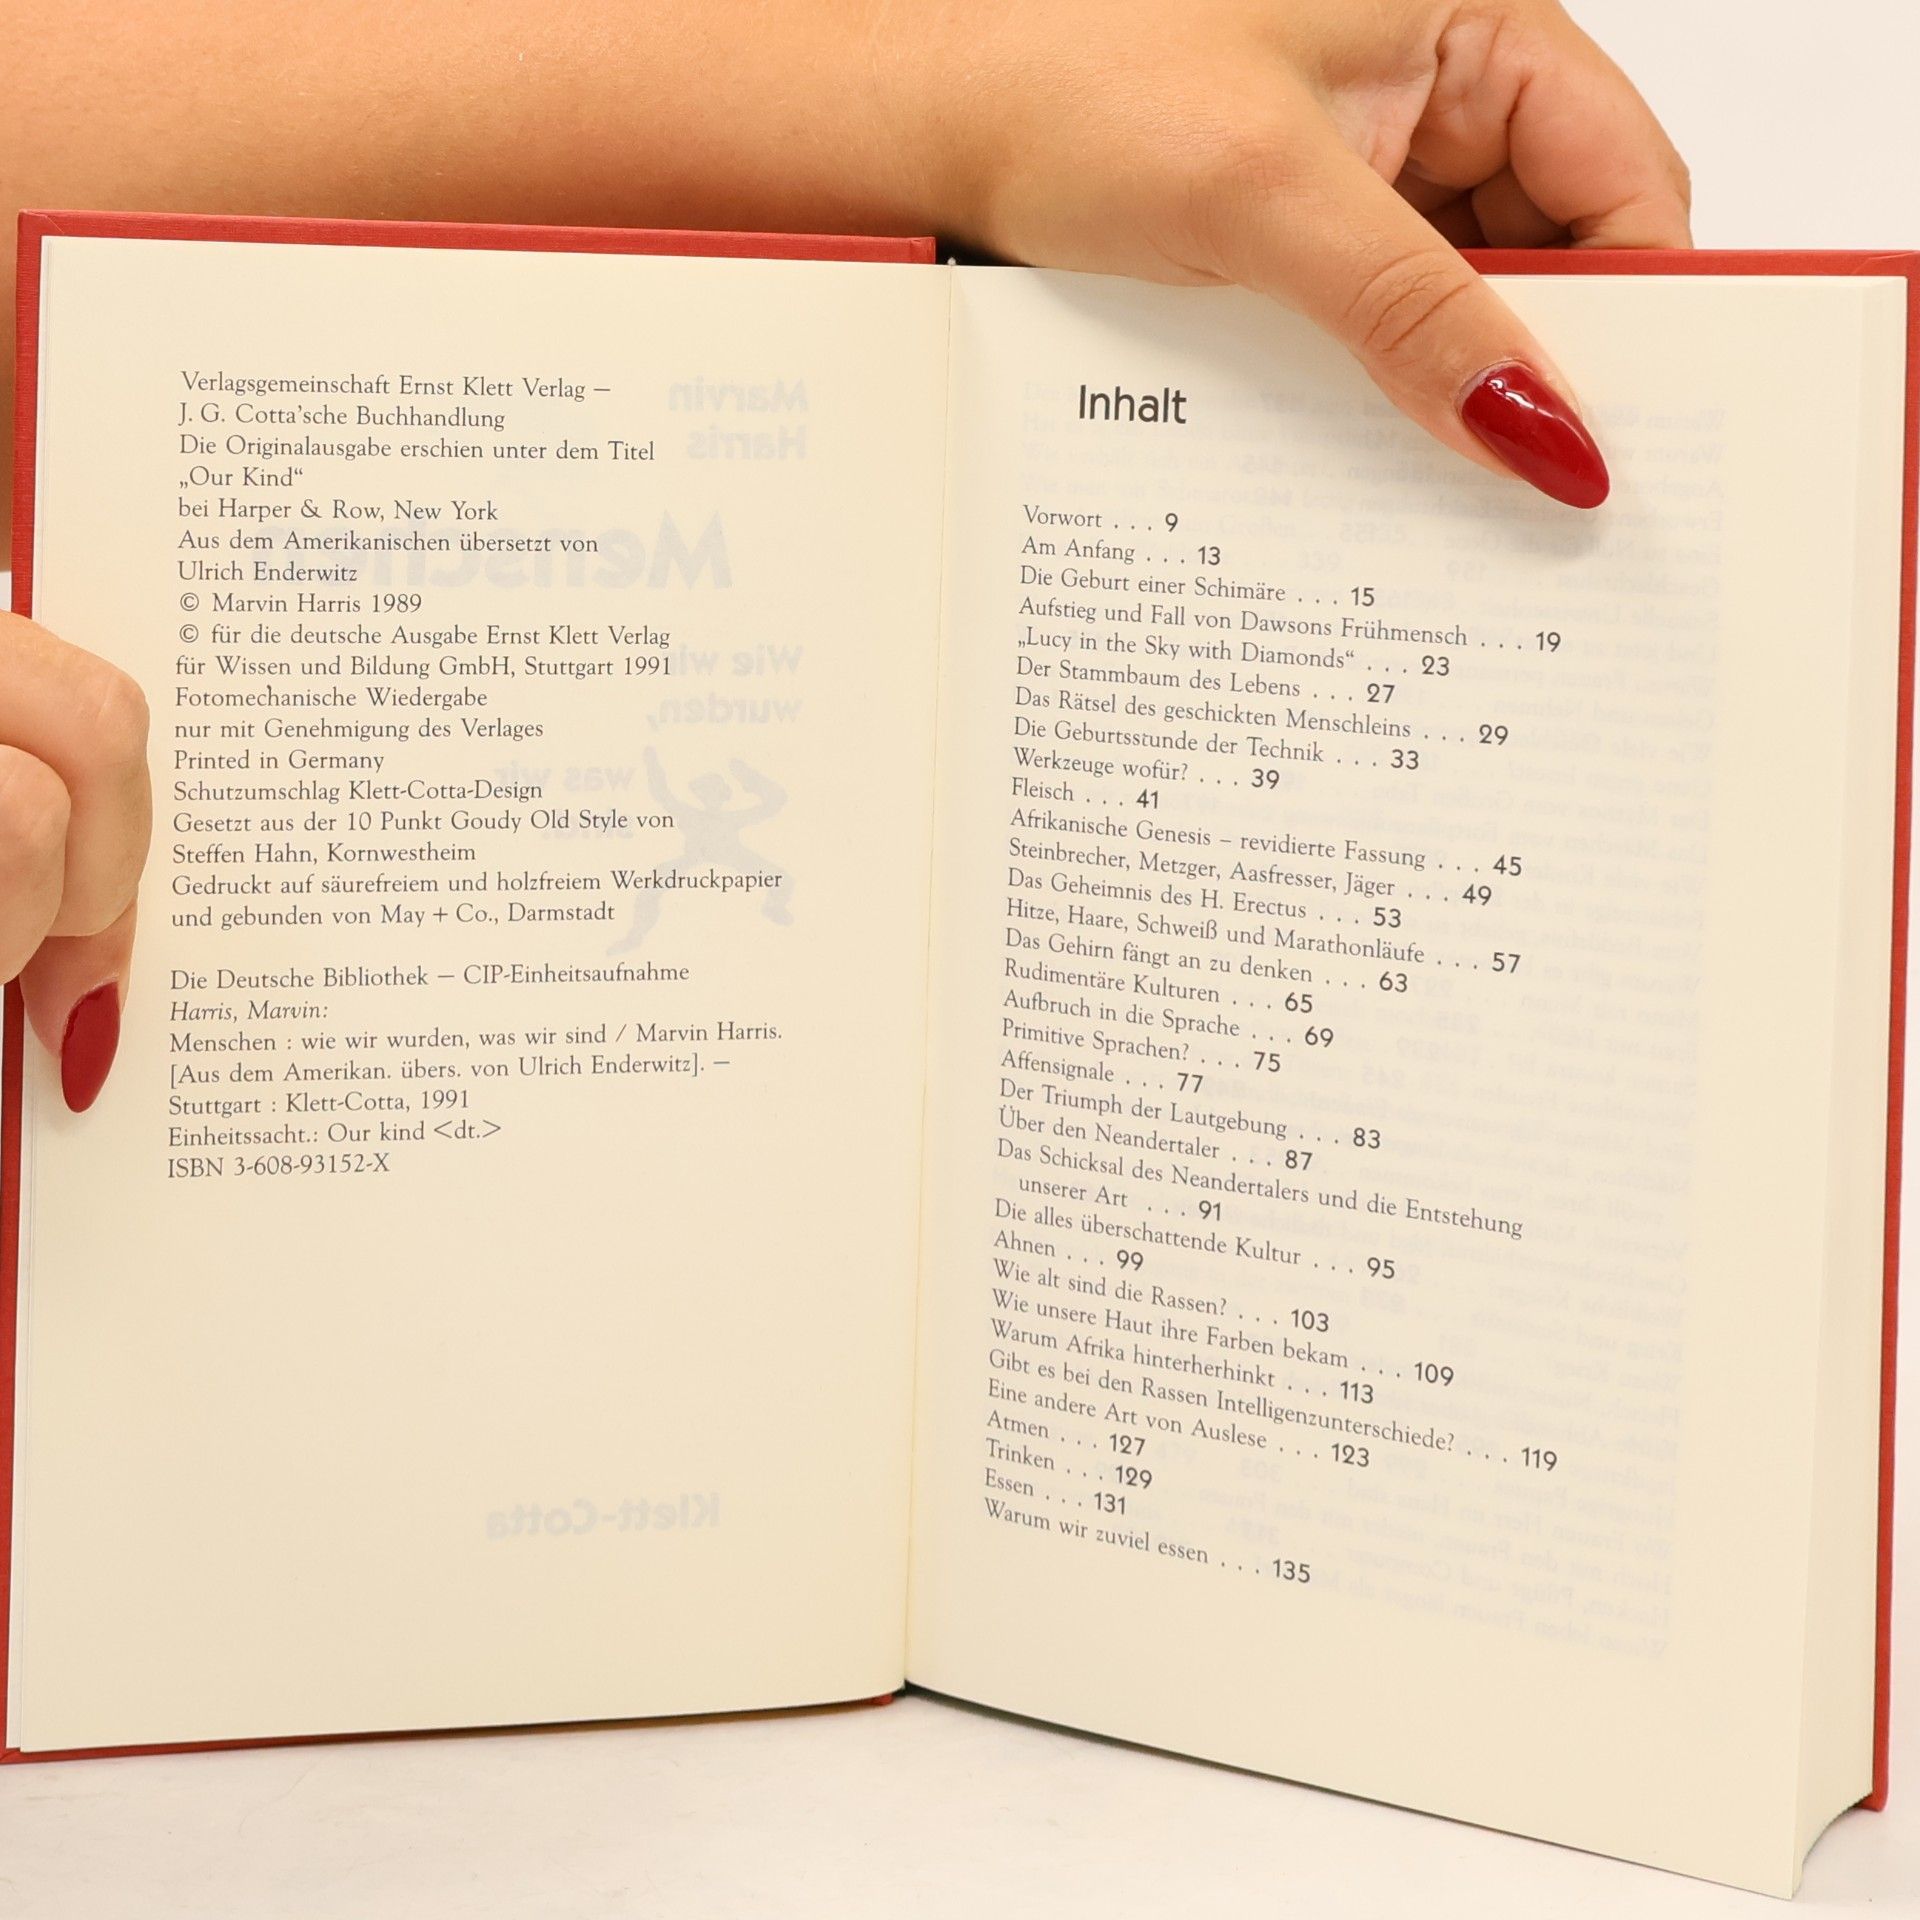 Verlagsgemeinschaft Ernst Klett Verlag –
J. G. Cotta'sche Buchhandlung
Die Originalausgabe erschien unter dem Titel
„Our Kind“
bei Harper & Row, New York
Aus dem Amerikanischen übersetzt von
Ulrich Enderwitz
© Marvin Harris 1989
© für die deutsche Ausgabe Ernst Klett Verlag
für Wissen und Bildung GmbH, Stuttgart 1991
Fotomechanische Wiedergabe
nur mit Genehmigung des Verlages
Printed in Germany
Schutzumschlag Klett-Cotta-Design
Gesetzt aus der 10 Punkt Goudy Old Style von
Steffen Hahn, Kornwestheim
Gedruckt auf säurefreiem und holzfreiem Werkdruckpapier
und gebunden von May + Co., Darmstadt
Die Deutsche Bibliothek – CIP-Einheitsaufnahme
Harris, Marvin:
Menschen : wie wir wurden, was wir sind / Marvin Harris.
[Aus dem Amerikan. übers. von Ulrich Enderwitz]. –
Stuttgart : Klett-Cotta, 1991
Einheitssacht.: Our kind <dt.>
ISBN 3-608-93152-X
Inhalt
Vorwort . . . 9
Am Anfang . . . 13
Die Geburt einer Schimäre . . . 15
Aufstieg und Fall von Dawsons Frühmensch . . . 19
„Lucy in the Sky with Diamonds“ . . . 23
Der Stammbaum des Lebens . . . 27
Das Rätsel des geschickten Menschleins . . . 29
Die Geburtsstunde der Technik . . . 33
Werkzeuge wofür? . . . 39
Fleisch . . . 41
Afrikanische Genesis – revidierte Fassung . . . 45
Steinbrecher, Metzger, Aasfresser, Jäger . . . 49
Das Geheimnis des H. Erectus . . . 53
Hitze, Haare, Schweiß und Marathonläufe . . . 57
Das Gehirn fängt an zu denken . . . 63
Rudimentäre Kulturen . . . 65
Aufbruch in die Sprache . . . 69
Primitive Sprachen? . . . 75
Affensignale . . . 77
Der Triumph der Lautgebung . . . 83
Über den Neandertaler . . . 87
Das Schicksal des Neandertalers und die Entstehung
unserer Art . . . 91
Die alles überschattende Kultur . . . 95
Ahnen . . . 99
Wie alt sind die Rassen? . . . 103
Wie unsere Haut ihre Farben bekam . . . 109
Warum Afrika hinterherhinkt . . . 113
Gibt es bei den Rassen Intelligenzunterschiede? . . . 119
Eine andere Art von Auslese . . . 123
Atmen . . . 127
Trinken . . . 129
Essen . . . 131
Warum wir zuviel essen . . . 135